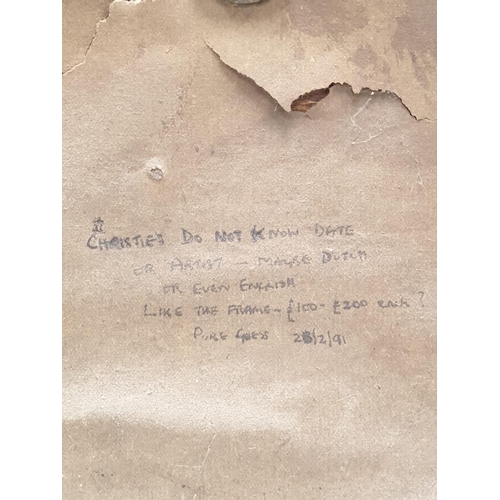 CHRISTIES DO NOT KNOW DATE
OR ARTIST - MAYBE DUTCH
OR EVEN ENGLISH
LIKE THE FRAME - £100 - £200 EACH?
PURE GUESS 28/2/91